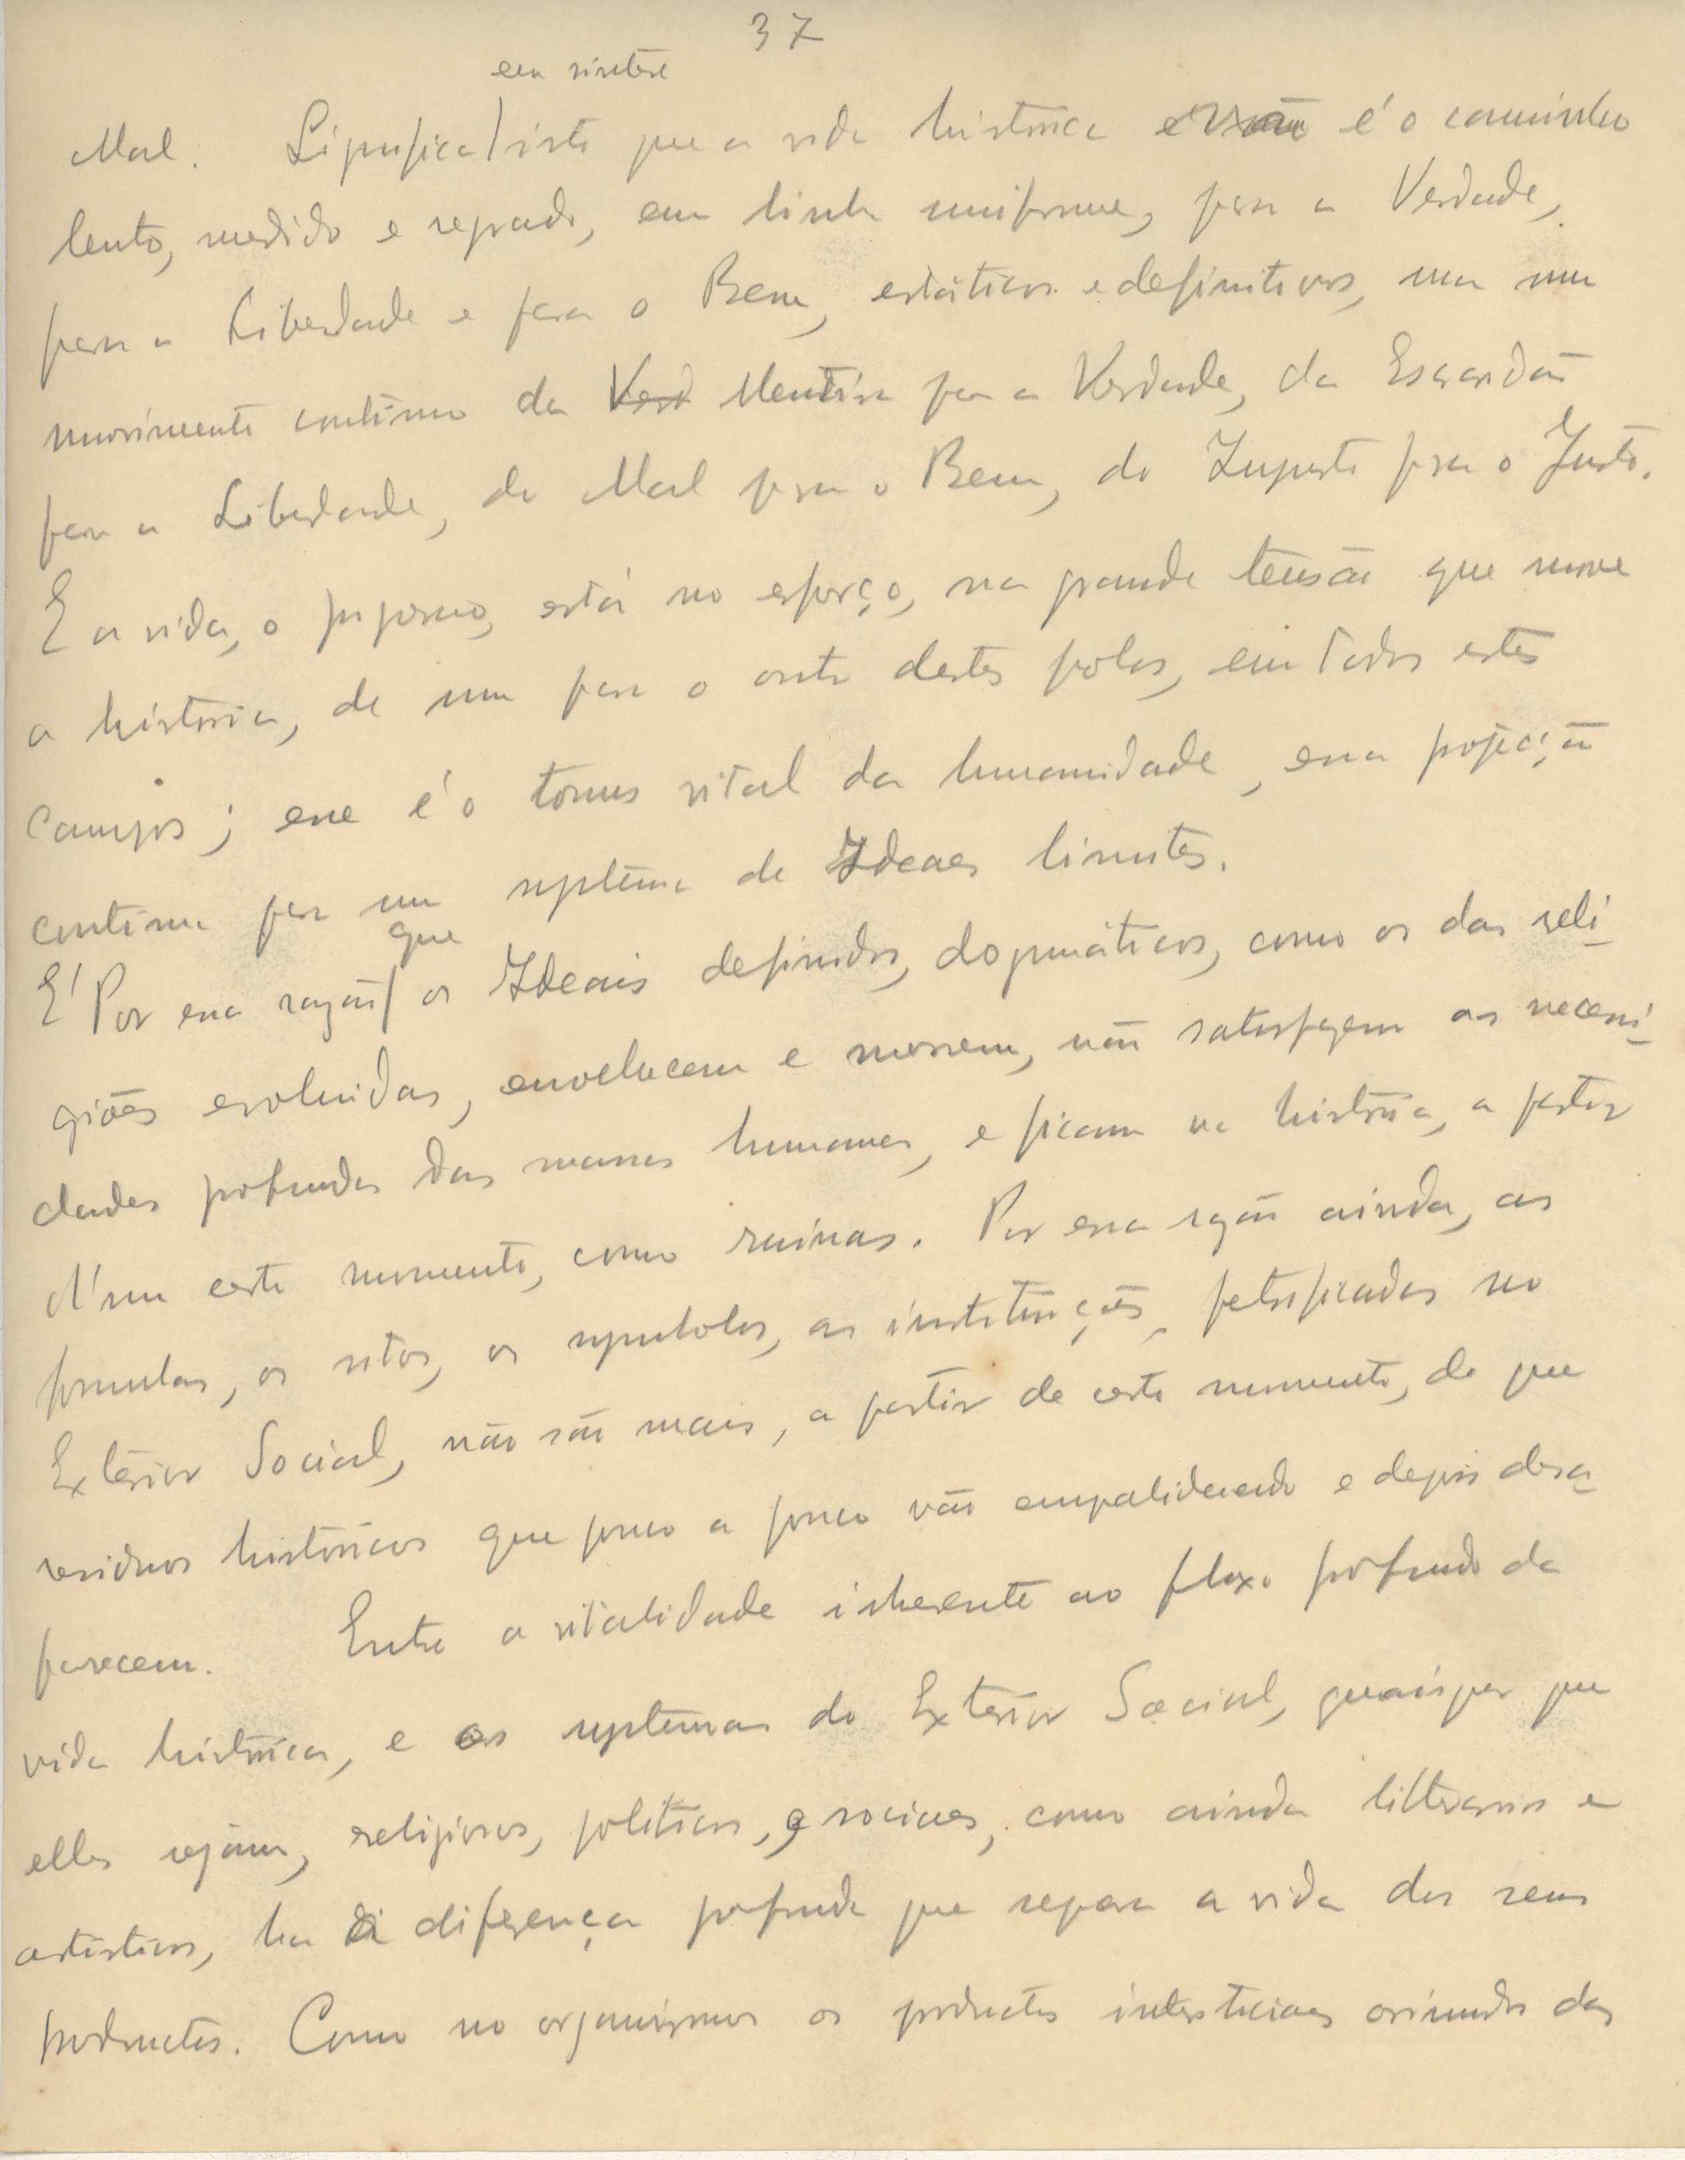 37
em sintese
Mal. Significa isto que a vida historica não é o caminho
lento, medido e regrado, em linha uniforme, para a Verdade,
para a Liberdade e para o Bem, estáticos e definitivos, mas um
movimento continuo da Verd Mentira para a Verdade, da Escravidão
para a Liberdade, do Mal para o Bem, do Injusto para o Justo.
E a vida, o progresso, está no esforço, na grande tensão que move
a historia, de um para o outro destes polos, em todos estes
campos; esse é o tonus vital da humanidade, essa projecção
continua para um systema de Ideaes limites.
que
É Por essa razão os Ideais definidos, dogmáticos, como os das reli-
giões evoluidas, envelhecem e morrem, não satisfazem as necessi-
dades profundas das massas humanas, e ficam na história, a partir
d'um certo momento, como ruinas. Por essa razão ainda, as
formulas, os ritos, os symbolos, as instituições, petrificadas no
Exterior Social, não são mais, a partir de certo momento, do que
residuos históricos que pouco a pouco vão empalidecendo e depois desa-
parecem. Entre a vitalidade inherente ao fluxo profundo da
vida histórica, e os systemas do Exterior Social, quaisquer que
elles sejam, religiosos, politicos, e sociaes, como ainda litterarios e
artisticos, ha a diferença profunda que separa a vida dos seus
productos. Como no organismos os productos intersticiaes oriundos das